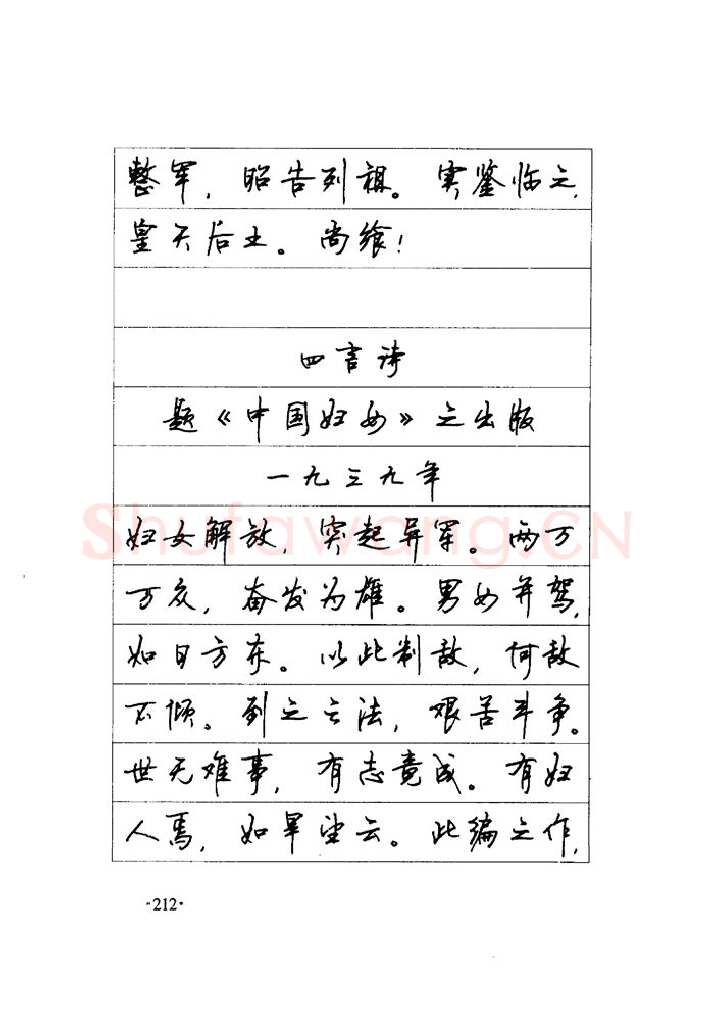 整军，昭告列祖。实鉴临之，
皇天后土。尚飨！
四言诗
题《中国妇女》之出版
一九三九年
妇女解放，突起异军。两万
万众，奋发为雄。男女并驾，
如日方东。以此制敌，何敌
不倾。到之之法，艰苦斗争。
世无难事，有志竟成。有妇
人焉，如旱望云。此编之作，
·212·
Shufawang.CN